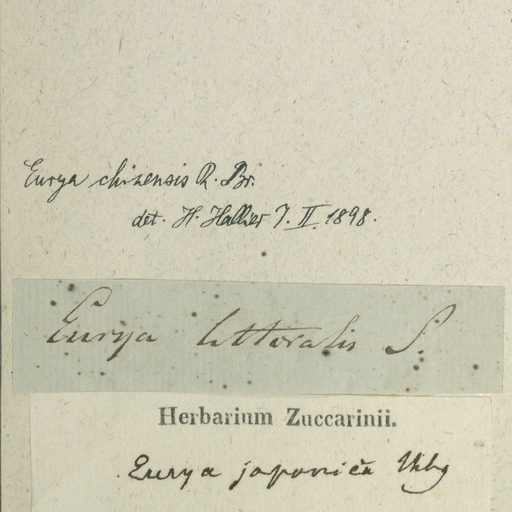 Eurya chinensis R. Br.
det. H. Hallier 7. II. 1898.
Eurya littoralis S.
Herbarium Zuccarinii.
Eurya japonica Thbg